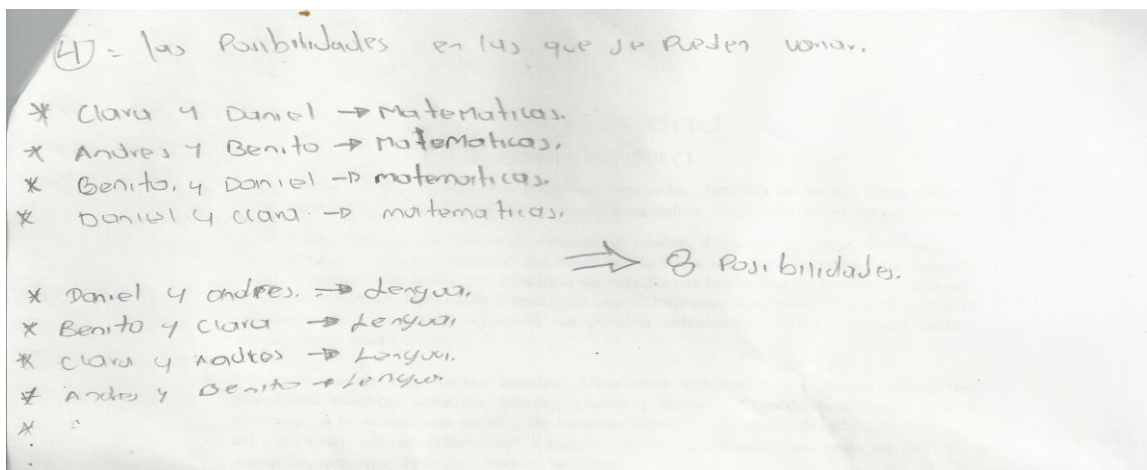 ④ = las Posibilidades en las que se pueden tomar.
* Clara y Daniel → Matematicas.
* Andres y Benito → Matematicas.
* Benito, y Daniel → matematicas.
* Daniel y Clara → matematicas.
⇒ 8 Posibilidades.
* Daniel y andres. → Lengua.
* Benito y Clara → Lengua.
* Clara y → Lengua.
* Andres y Benito → Lengua
*